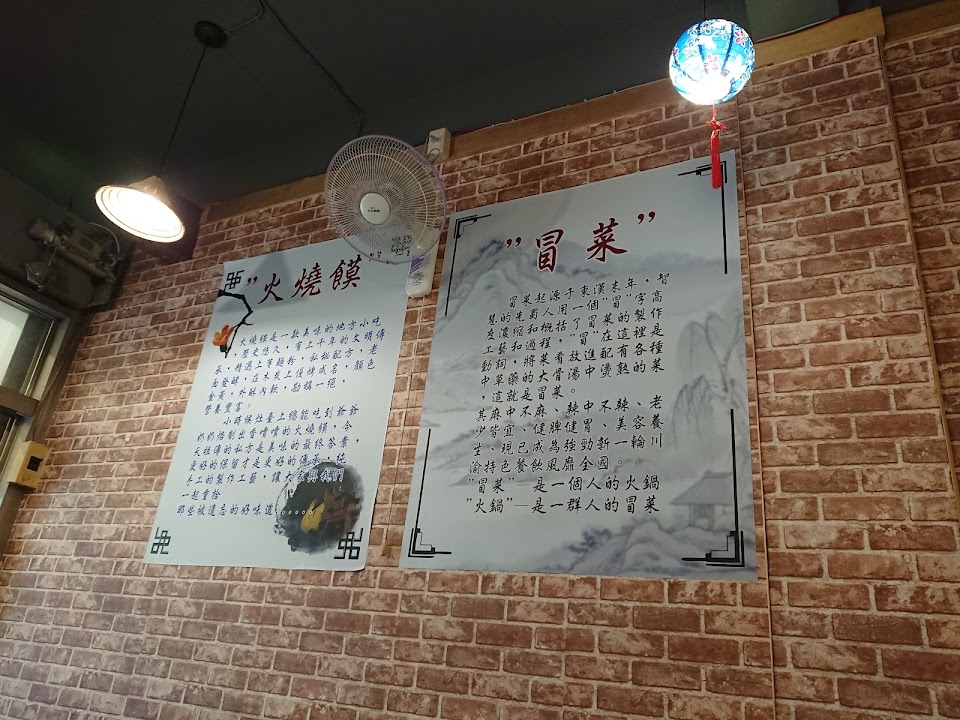 "火燒饃"
火燒饃是一款美味的地方小吃
，歷史悠久，有上千年的文明傳
承，精選上等麵粉，私秘配方，老
面發酵，益木炭上慢烤成名，顏色
金黃，外酥內軟，勁稱一絕，
營養豐富。
小時候灶臺上總能吃到爺爺
奶奶焙制出香噴噴的火燒饃，今
天祖傳的私方是美味的最終答案，
更好的保留才是更好的傳承，純
手工的製作工藝，讓大家與我們
一起重拾
那些被遺忘的好味道......
"冒菜"
冒菜起源于東漢末年，智
慧的先蜀人用一個"冒"字高
度濃缩和概括了冒菜的製作
工藝和過程，"冒"在這裡是
動詞，將菜肴放進配有各種
中草藥的大骨湯中燙熟的菜
，這就是冒菜。
其麻中不麻、辣中不辣、老
少皆宜、健脾健胃、美容養
生、現已成為強勁新一輪川
渝特色餐飲風靡全國。
"冒菜"—是一個人的火鍋
"火鍋"—是一群人的冒菜